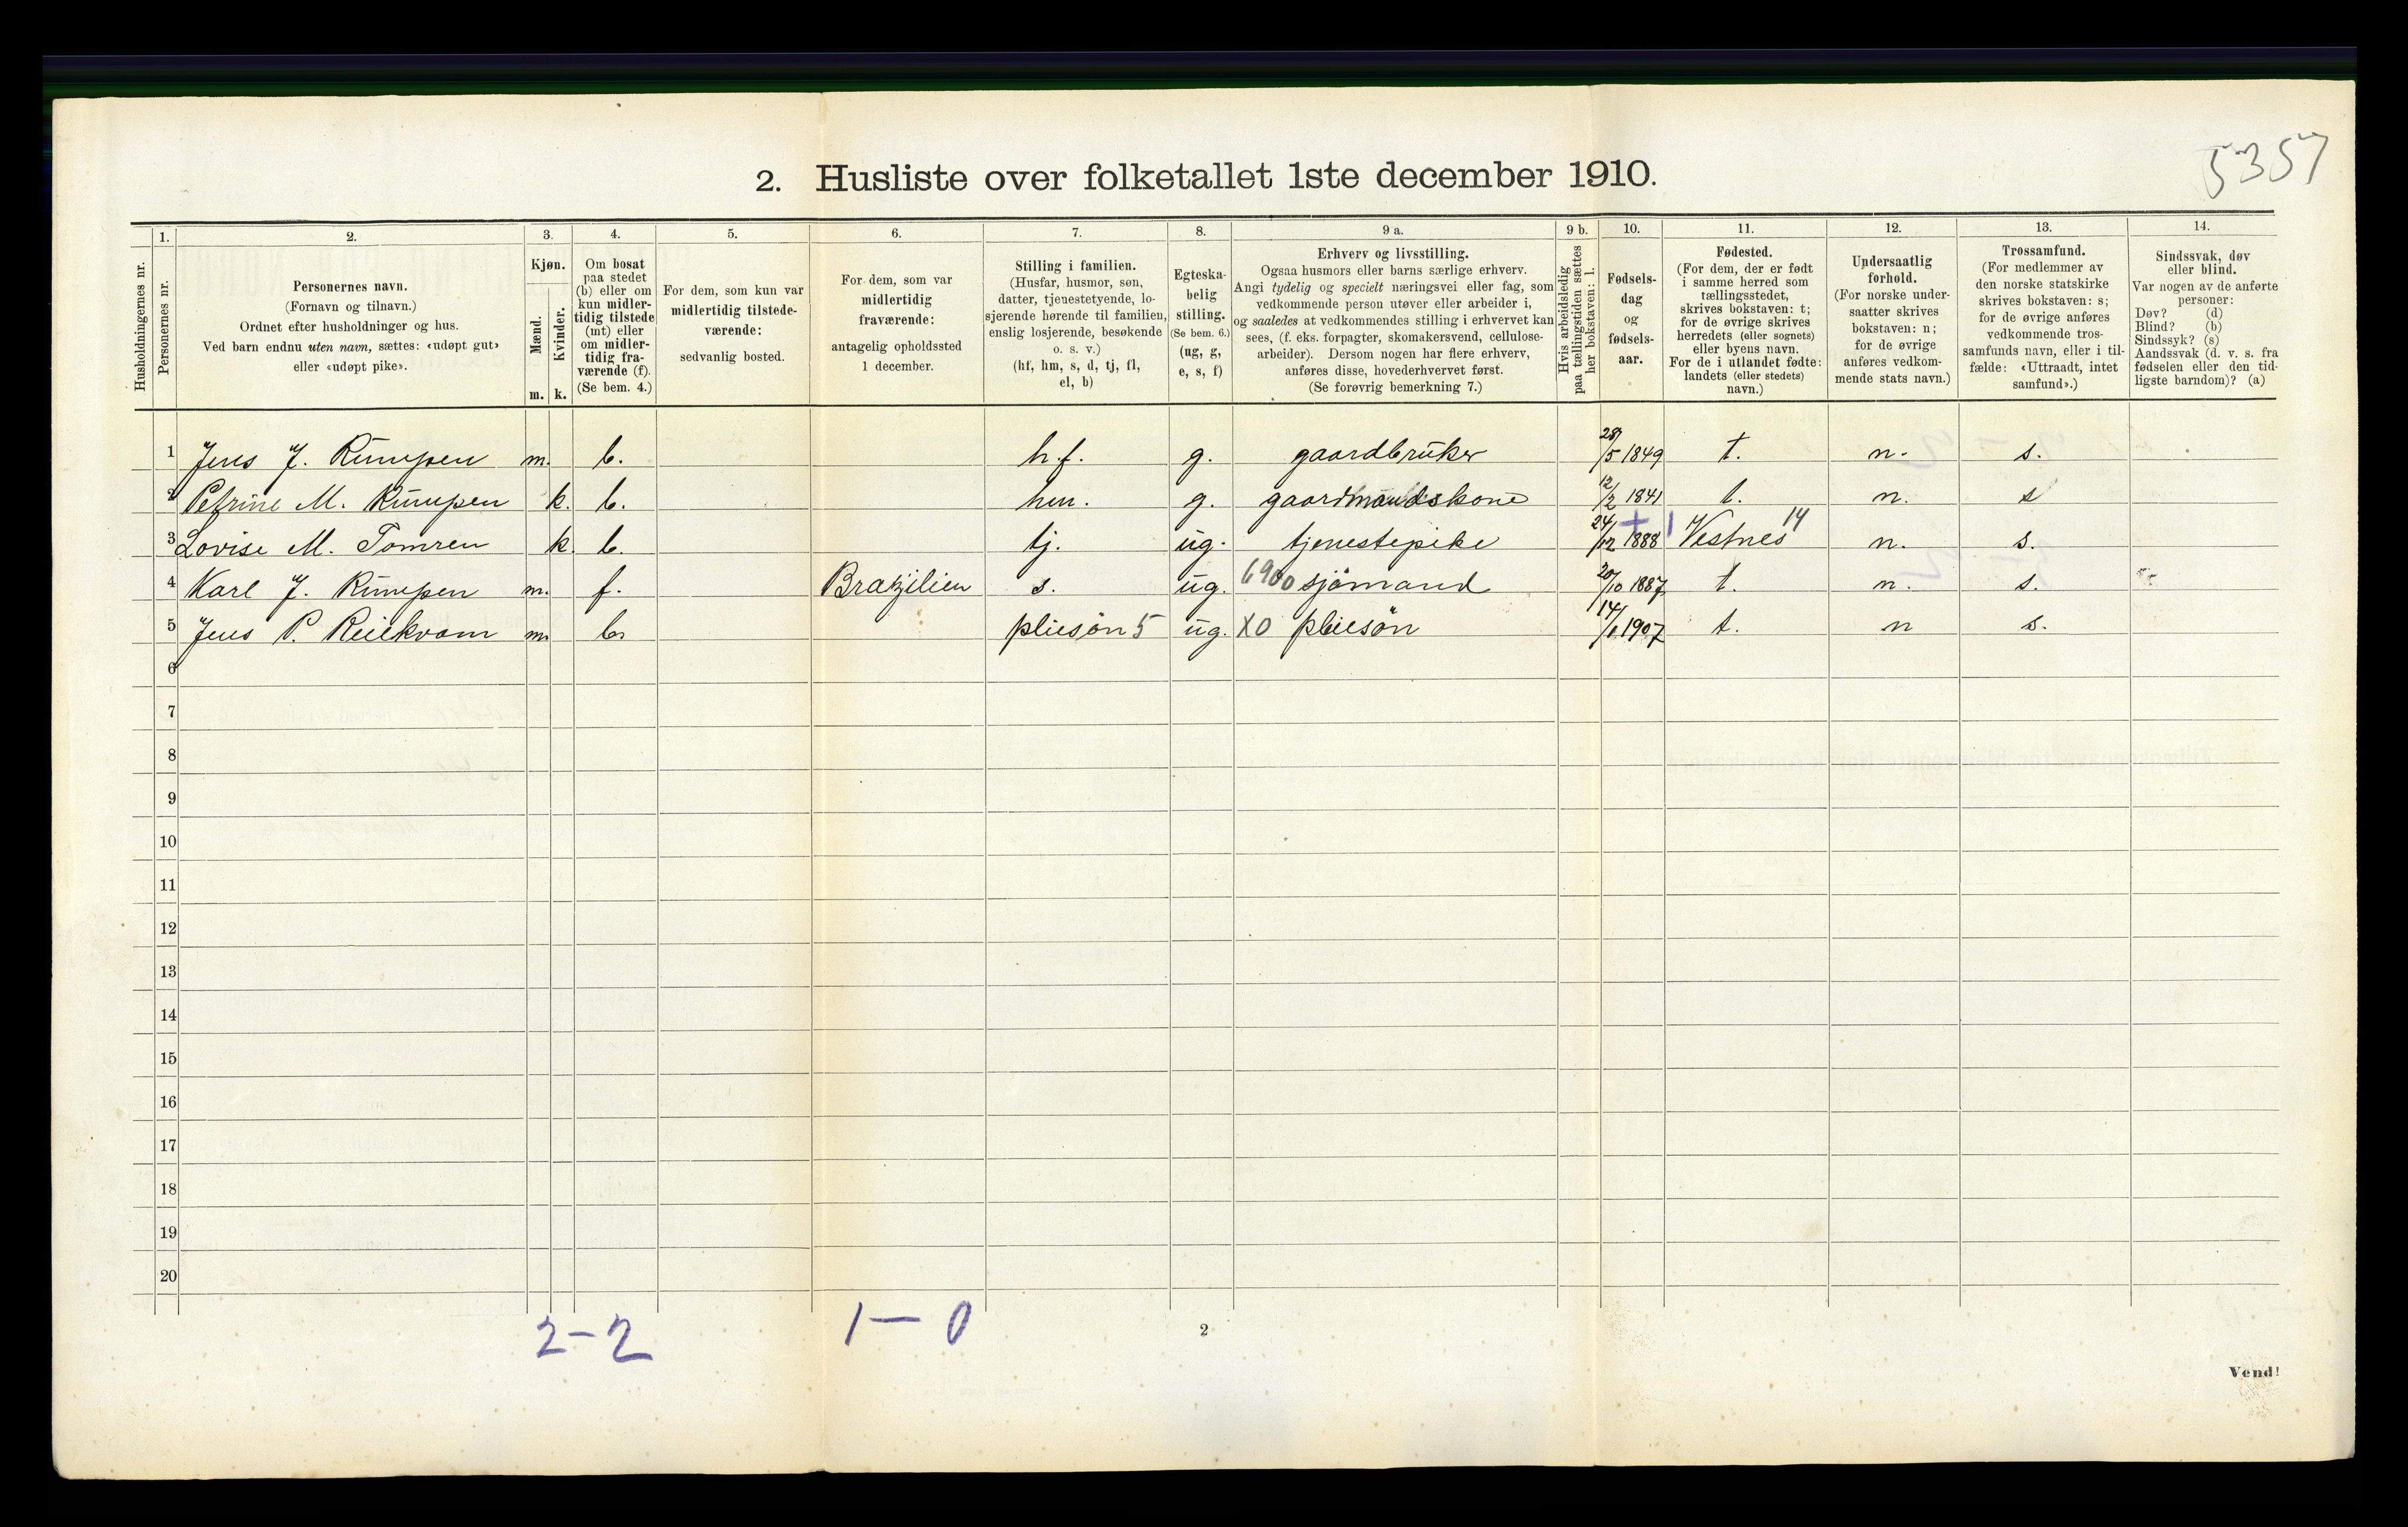 5357
2. Husliste over folketallet 1ste december 1910.
1. 2. 3. 4. 5. 6. 7. 8. 9 a. 9 b. 10. 11. 12. 13. 14.
Husholdningernes nr.
Personernes nr.
Personernes navn.
(Fornavn og tilnavn.)
Ordnet efter husholdninger og hus.
Ved barn endnu uten navn, sættes: «udøpt gut»
eller «udøpt pike».
Kjøn.
Mænd.
Kvinder.
m. k.
Om bosat
paa stedet
(b) eller om
kun midler-
tidig tilstede
(mt) eller
om midler-
tidig fra-
værende (f).
(Se bem. 4.)
For dem, som kun var
midlertidig tilstede-
værende:
sedvanlig bosted.
For dem, som var
midlertidig
fraværende:
antagelig opholdssted
1 december.
Stilling i familien.
(Husfar, husmor, søn,
datter, tjenestetyende, lo-
sjerende hørende til familien,
enslig losjerende, besøkende
o. s. v.)
(hf, hm, s, d, tj, fl,
el, b)
Egteska-
belig
stilling.
(Se bem. 6.)
(ug, g,
e, s, f)
Erhverv og livsstilling.
Ogsaa husmors eller barns særlige erhverv.
Angi tydelig og specielt næringsvei eller fag, som
vedkommende person utøver eller arbeider i,
og saaledes at vedkommendes stilling i erhvervet kan
sees, (f. eks. forpagter, skomakersvend, cellulose-
arbeider). Dersom nogen har flere erhverv,
anføres disse, hovederhvervet først.
(Se forøvrig bemerkning 7.)
Hvis arbeidsledig
paa tællingstiden sættes
her bokstaven: l.
Fødsels-
dag
og
fødsels-
aar.
Fødested.
(For dem, der er født
i samme herred som
tællingsstedet,
skrives bokstaven: t;
for de øvrige skrives
herredets (eller sognets)
eller byens navn.
For de i utlandet fødte:
landets (eller stedets)
navn.)
Undersaatlig
forhold.
(For norske under-
saatter skrives
bokstaven: n;
for de øvrige
anføres vedkom-
mende stats navn.)
Trossamfund.
(For medlemmer av
den norske statskirke
skrives bokstaven: s;
for de øvrige anføres
vedkommende tros-
samfunds navn, eller i til-
fælde: «Uttraadt, intet
samfund».)
Sindssvak, døv
eller blind.
Var nogen av de anførte
personer:
Døv? (d)
Blind? (b)
Sindssyk? (s)
Aandssvak (d. v. s. fra
fødselen eller den tid-
ligste barndom)? (a)
1 Jens J. m. b. h.f. g. gaardbruker 28/5 1849 t. n. s.
2 Petrine M. k. b. hm. g. gaardmandskone 12/2 1841 t. n. s
3 Lovise M. Tomren k. b. tj. ug. tjenestepike 24/12 1888 Vestnes 14 n. s.
4 Karl J. m. f. Brazilien s. ug. 6900 sjömand 20/10 1887 t. n. s.
5 Jens P. m. b. pleiesön 5 ug. XO pleiesön 14/1 1907 t. n s.
6
7
8
9
10
11
12
13
14
15
16
17
18
19
20
2-2 1-0
2
Vend!